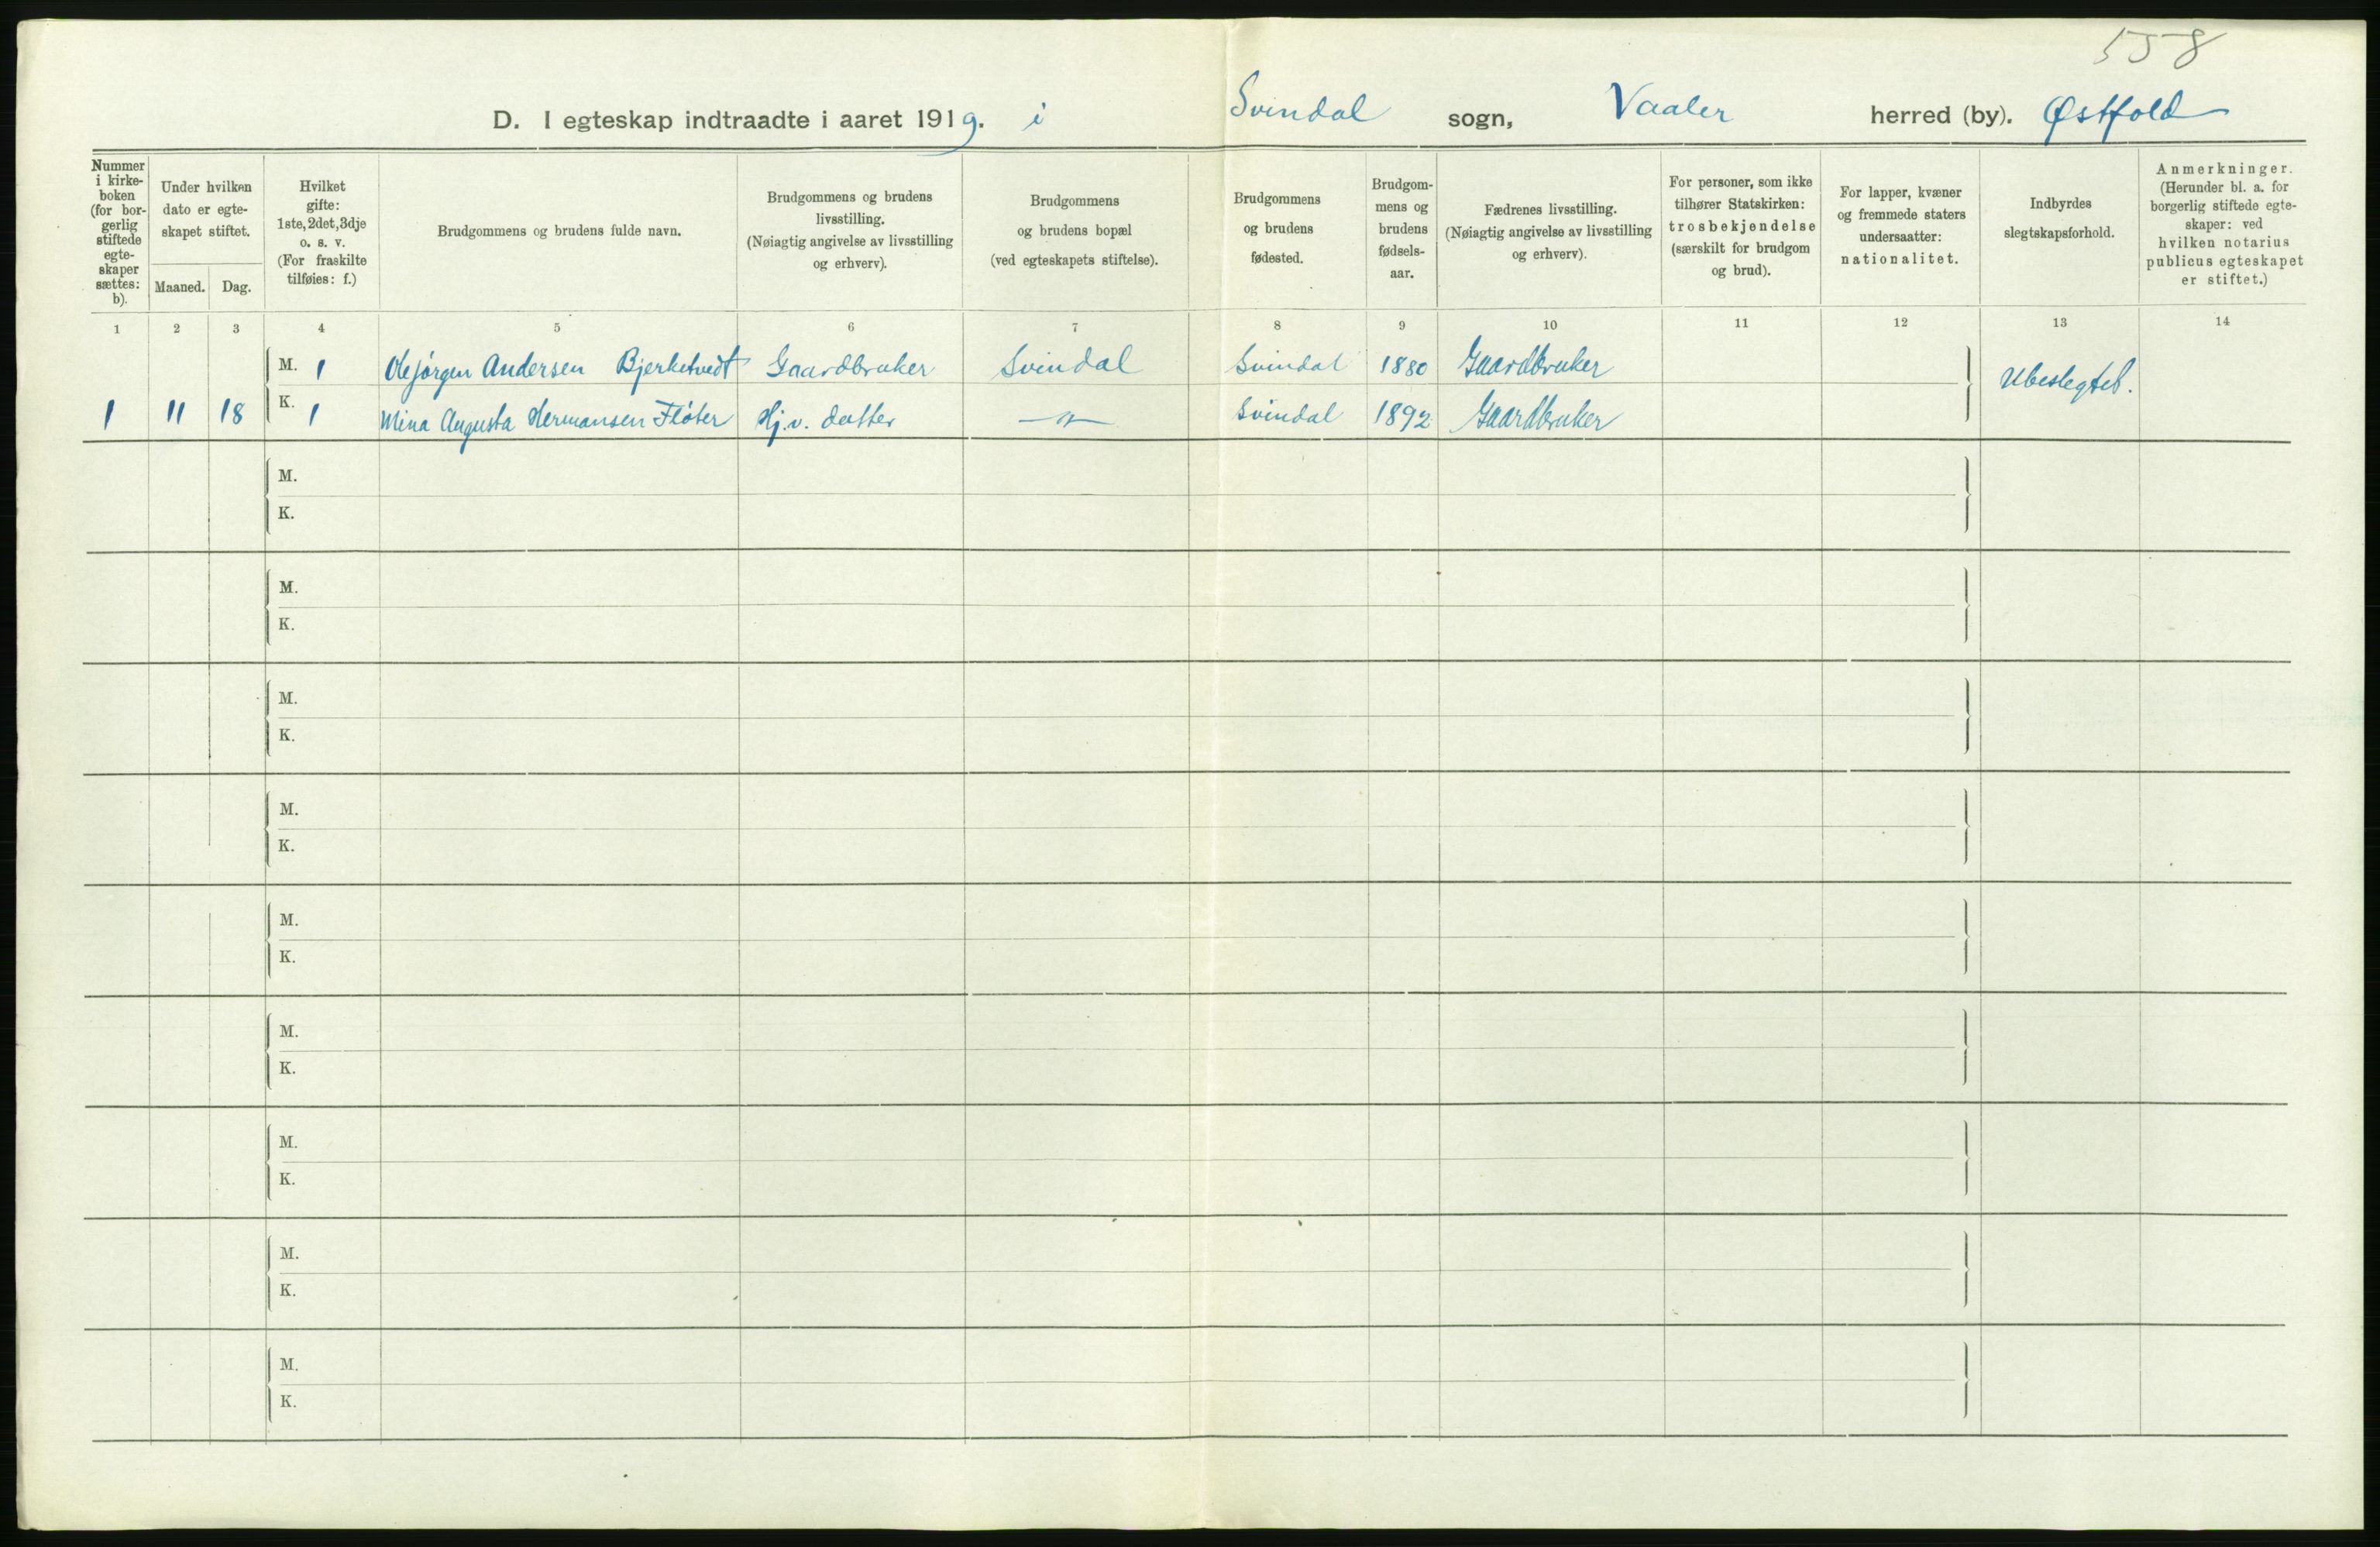 558
D. I egteskap indtraadte i aaret 1919. i Svindal sogn, Vaaler herred (by). Østfold
Nummer i kirke-boken (for bor-gerlig stiftede egte-skaper sættes: b).
Under hvilken dato er egte-skapet stiftet.
Maaned. Dag.
Hvilket gifte: 1ste, 2det, 3dje o. s. v. (For fraskilte tilføies: f.)
Brudgommens og brudens fulde navn.
Brudgommens og brudens livsstilling. (Nøiagtig angivelse av livsstilling og erhverv).
Brudgommens og brudens bopæl (ved egteskapets stiftelse).
Brudgommens og brudens fødested.
Brudgom-mens og brudens fødsels-aar.
Fædrenes livsstilling. (Nøiagtig angivelse av livsstilling og erhverv).
For personer, som ikke tilhører Statskirken: trosbekjendelse (særskilt for brudgom og brud).
For lapper, kvæner og fremmede staters undersaatter: nationalitet.
Indbyrdes slegtskapsforhold.
Anmerkninger. (Herunder bl. a. for borgerlig stiftede egte-skaper: ved hvilken notarius publicus egteskapet er stiftet.)
1 2 3 4 5 6 7 8 9 10 11 12 13 14
M. 1 Olejørgen Andersen Bjerketvedt Gaardbruker Svindal Svindal 1880 Gaardbruker Ubeslegtet.
1 11 18 K. 1 Mina Augusta Hermansen Fløter Hj.v. datter —"— Svindal 1892 Gaardbruker
M.
K.
M.
K.
M.
K.
M.
K.
M.
K.
M.
K.
M.
K.
M.
K.
M.
K.